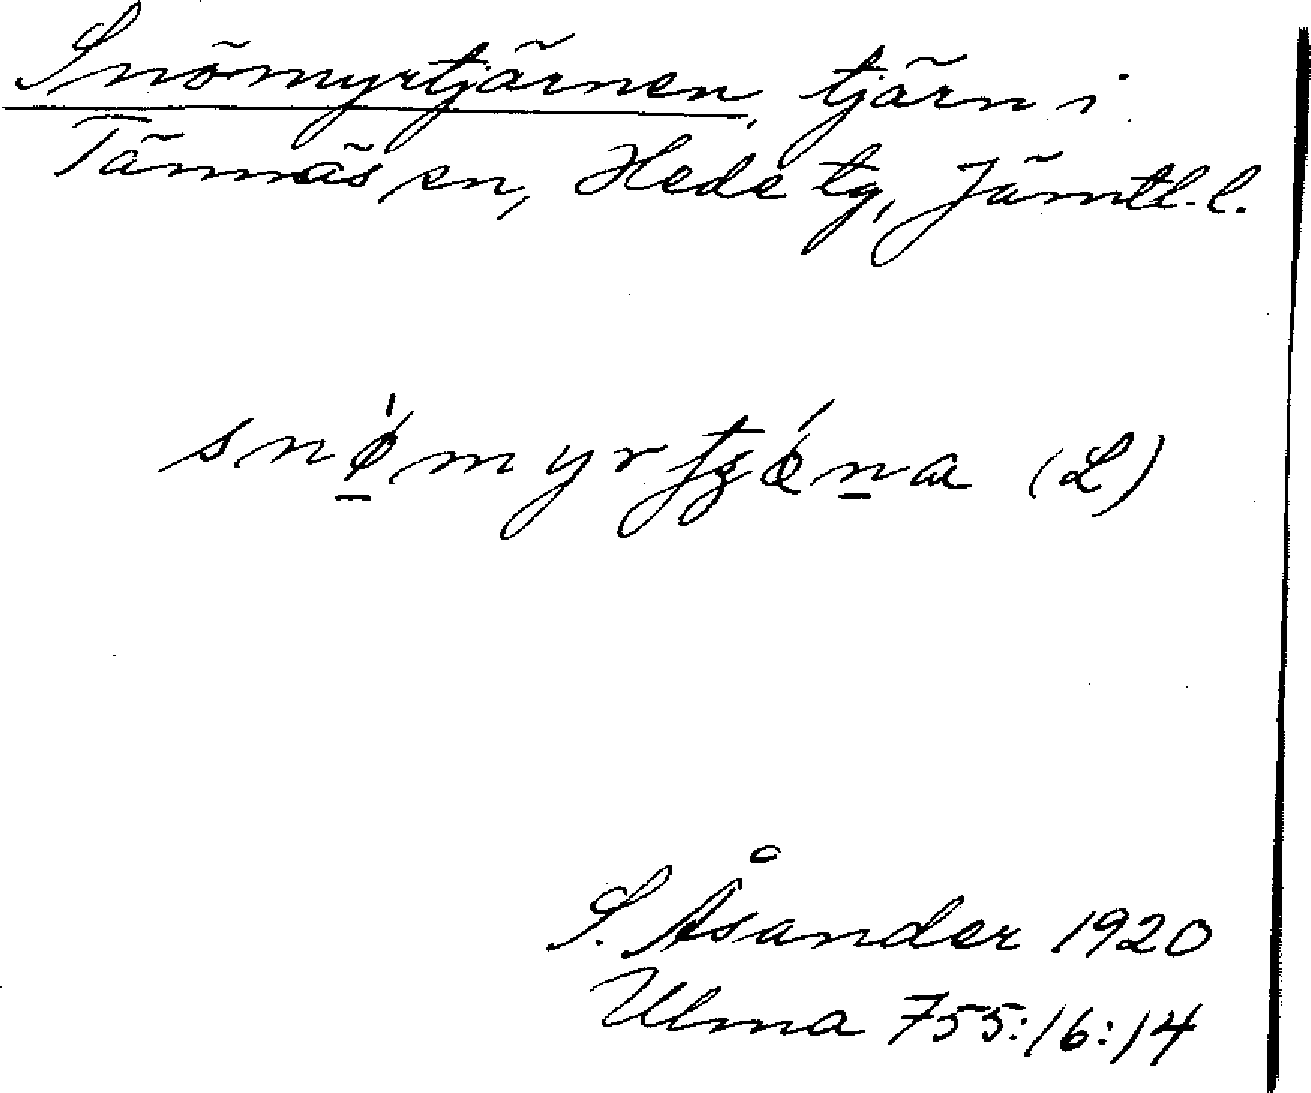 Snömyrtjärnen, tjärn i
Tännäs sn, Hede tg, Jämtl. l.
snǿ̠myrtʒǽn̠a (L)
S. Åsander 1920
Ulma 755:16:14